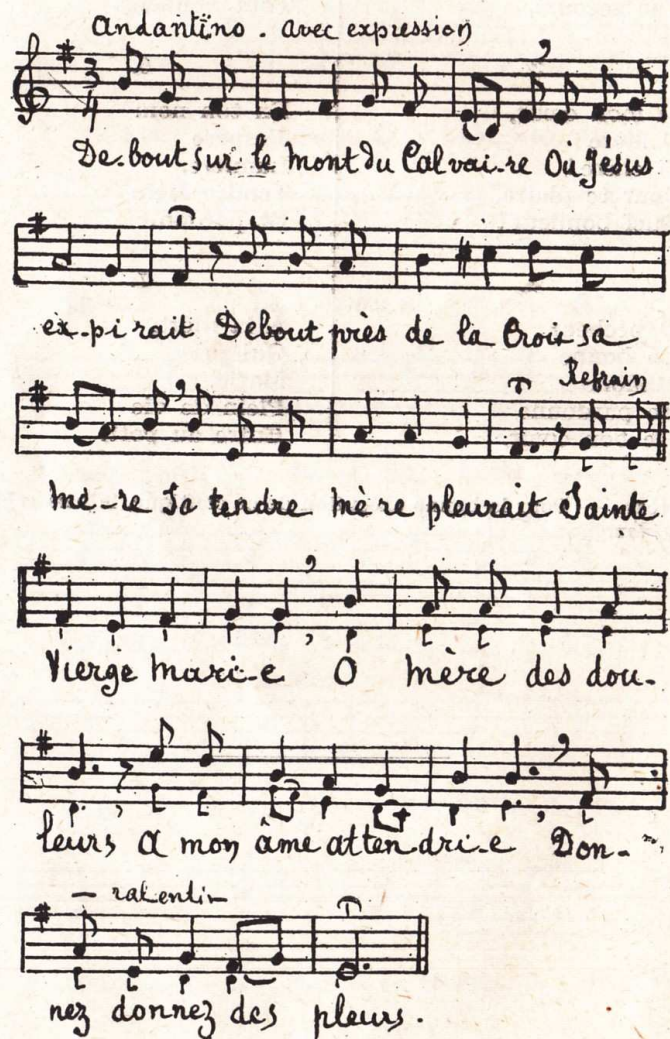 Andantino . avec expression
3
4
De-bout sur le Mont du Calvai-re Où Jésus
ex-pi rait Debout près de la Croix sa
Refrain
Mè-re Sa tendre mè re pleurait Sainte
Vierge Mari-e O Mère des dou-
leurs A mon âme atten dri-e Don-
- ralentir
nez donnez des pleurs.